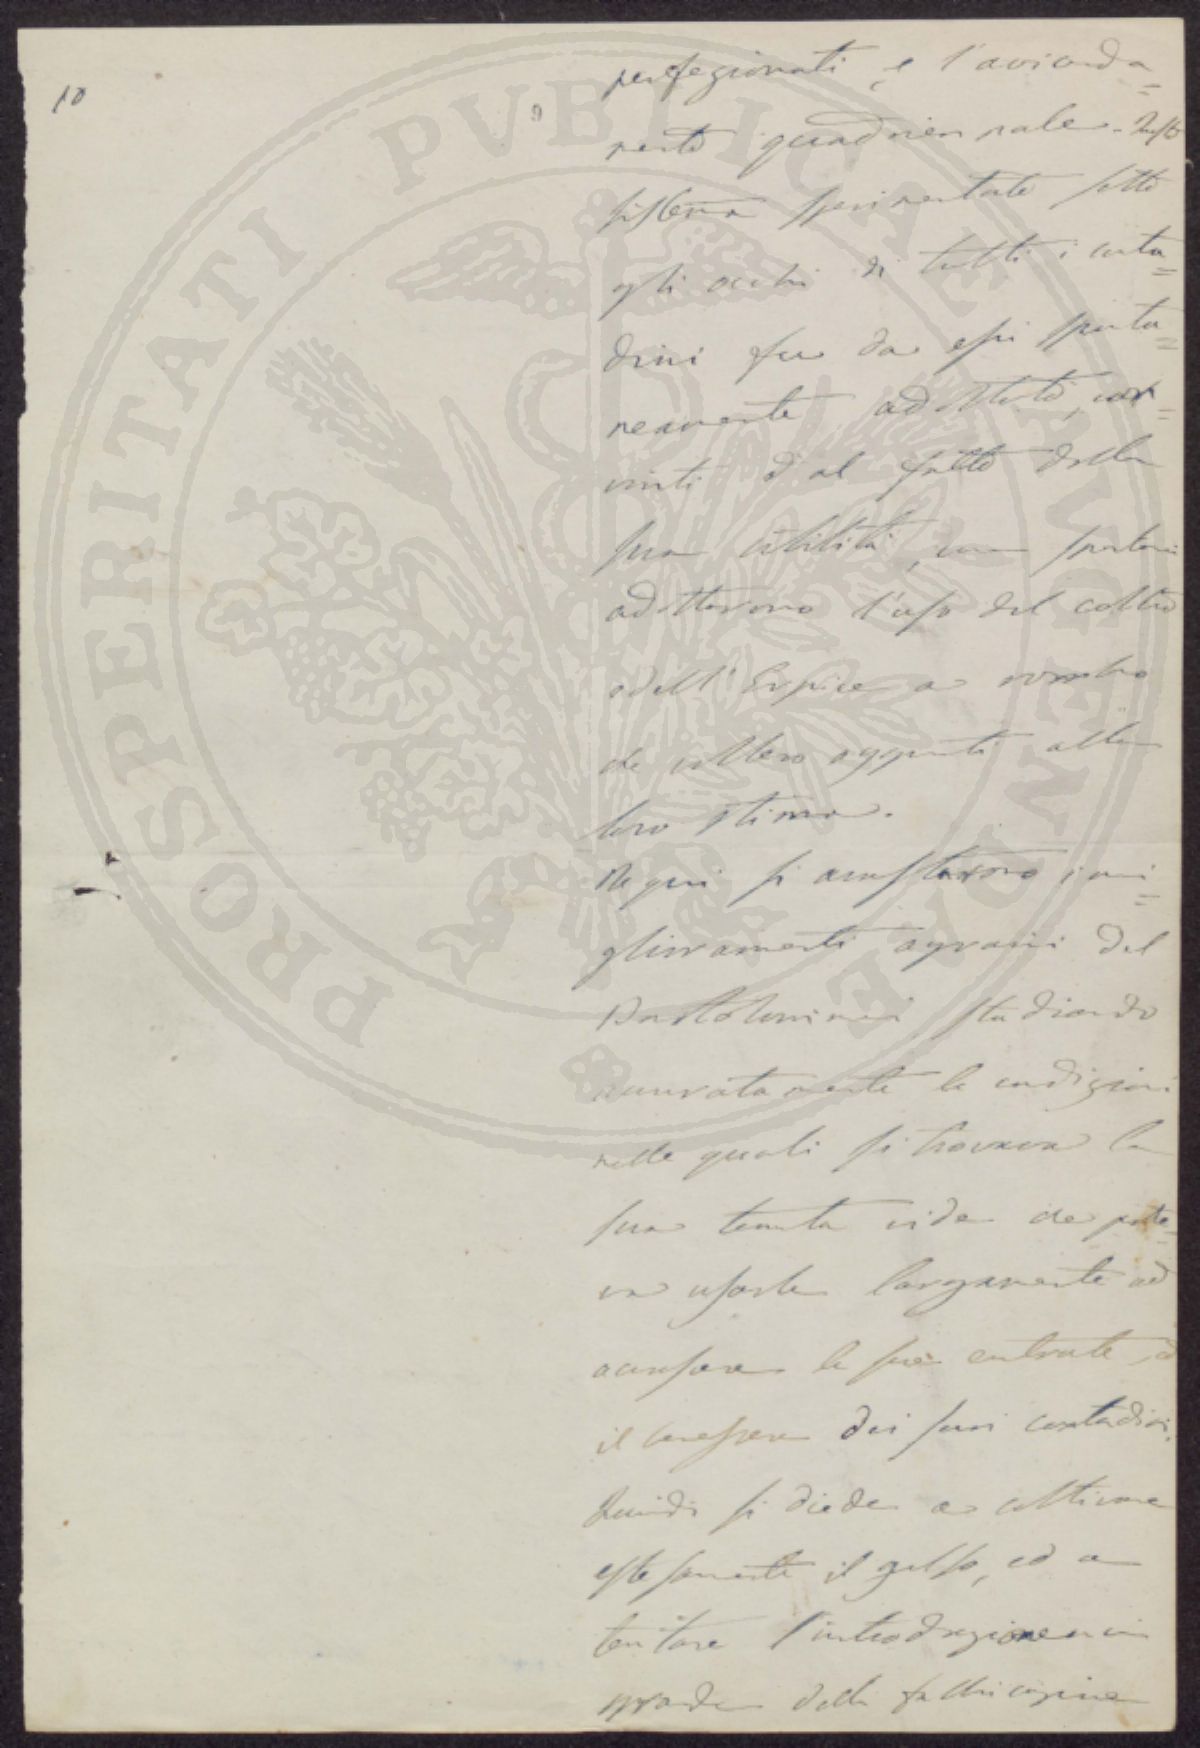 10
9
perfezionati, e l'avvicenda=
mento quadriennale. Questo
sistema sperimentato sotto
gli occhi di tutti i conta=
dini fu da essi sponta=
neamente adottato, con=
vinti dal fatto della
sua utilità,
adottarono l'uso del coltro
e dell'Erpice a rombo
che vollero aggiunti alle
loro stime.
Ne qui si arrestarono i mi=
glioramenti agrari del
Bartolommei studiando
accuratamente le condizioni
nelle quali si trovava la
sua tenuta vide che pote=
va usarle largamente ad
accrescere le sue entrate, ed
il benessere dei suoi contadini.
Quindi si diede a coltivare
estesamente il gelso, ed a
tentare l'introduzione in
grande della fabbricazione
PROSPERITATI PVBLICAE AVGENDAE